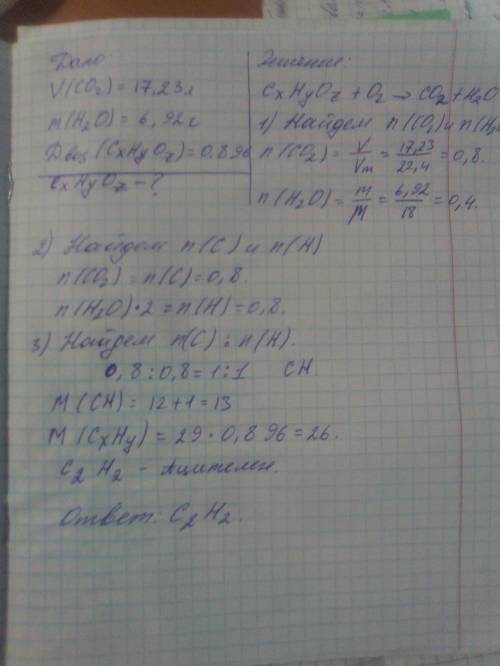 Дано
V(CO₂) = 17,23л
m(H₂O) = 6,92г
Двоз (CxHyOz) = 0,896
CxHyOz - ?
Решение:
CxHyOz + O₂ → CO₂ + H₂O
1) Найдем n(CO₂) и n(H₂O
n(CO₂) = V/Vm = 17,23/22,4 = 0,8.
n(H₂O) = m/M = 6,92/18 = 0,4.
2) Найдем n(C) и n(H)
n(CO₂) = n(C) = 0,8.
n(H₂O)·2 = n(H) = 0,8.
3) Найдем n(C) : n(H).
0,8 : 0,8 = 1 : 1 CH
M(CH) = 12 + 1 = 13
M(CxHy) = 29 · 0,896 = 26.
C₂H₂ - Ацителен.
Ответ: C₂H₂.